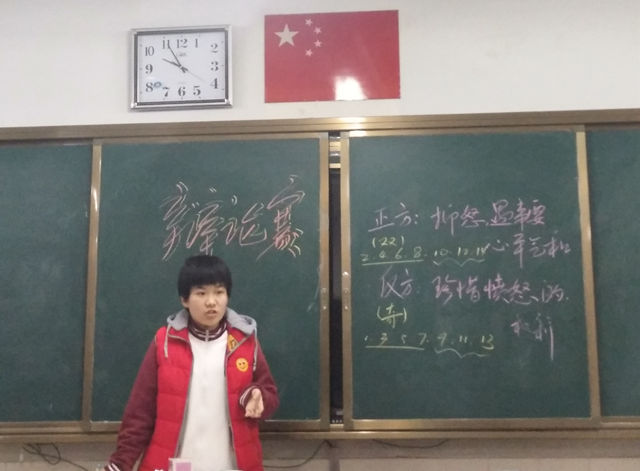 11 12 1
10 2
9 3
8 4
7 6 5
辩论赛
正方：抑怒，遇事要
心平气和
2.4.6.8.10.12.14
反方：珍惜愤怒的
权利
(奇)
1.3.5.7.9.11.13